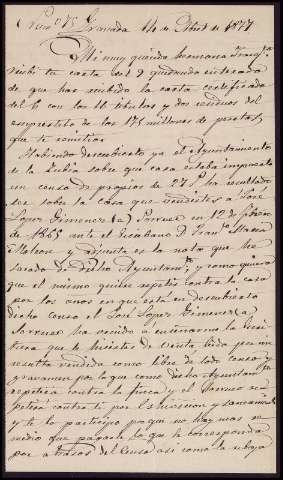 Granada 14 de Abril de 1877
Mi muy querida hermana Franca
recibi tu carta del 9 quedando enterado
de que has recibido la carta certificada
del 6 con los 16 titulos y dos residuos del
emprestito de los 175 millones de pesetas,
que te remitia.
Habiendo descubierto ya el Ayuntamiento
de la Zubia sobre que casa estaba impuesto
un censo de propios de 27 ha resultado
ser sobre la casa que vendistes a José
Lopez Gimenez (a) en 12 de
de 1865 ante el Escribano D. Franco Maria
es la nota que he
sacado de dicho Ayuntamto; y como quiera
que el mismo quiere repetir contra la casa
por los años en que está en descubierto
dicho censo el José Lopez Gimenez (a)
ha venido a enterarme la Escri
tura que le hicistes de venta
resulta vendida como libre de todo censo y
gravamen por lo que como dicho Ayuntamto
repetirá contra la finca y el re
petirá contra ti por la eviccion y saneamto
y te lo participo porque no hay mas re
medio que pagarle lo que le corresponda
por atrasos del Censo asi como la rebaja